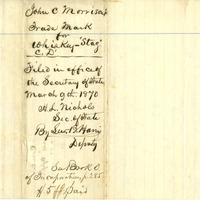 John C Morrison's
Trade Mark
for
Whiskey "Stag"
C. D.
Filed in office of
the Secretary of State
March 9th 1870
H. L. Nichols
Sec. of State
By Lew B. Harris
Deputy
See Book
of Incorporation p. 285
$5 ff paid